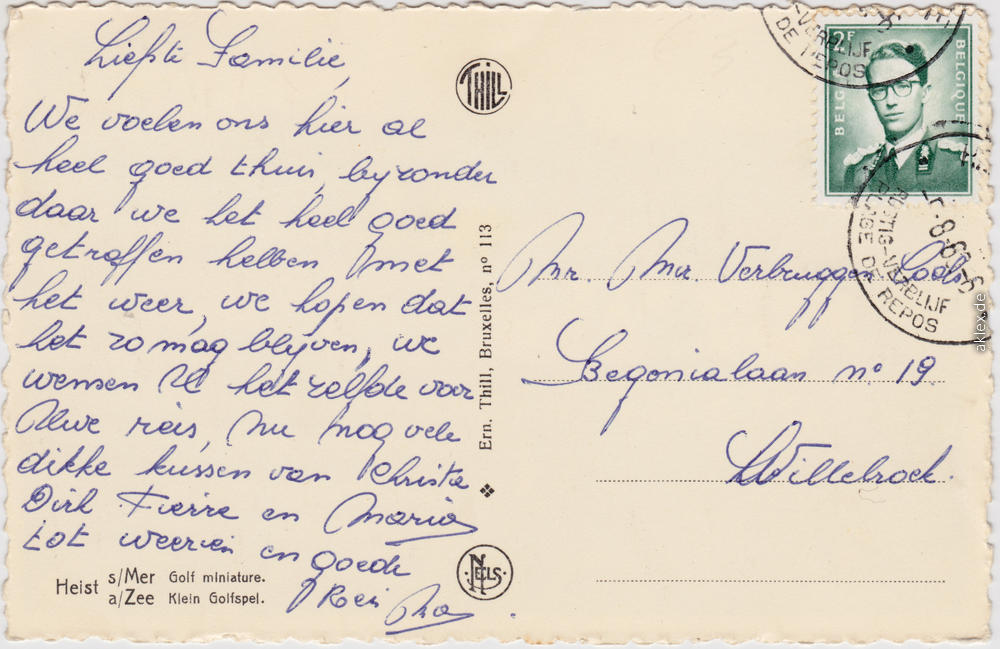 Liefste Familie,
We voelen ons hier al
heel goed thuis, byzonder
daar we het heel goed
getroffen hebben met
het weer, we hopen dat
het zo mag blyven, we
wensen U het zelfde voor
Uwe reis, nu nog vele
dikke kussen van Christa
Dirk Pierre en Maria
tot weerzien en goede
Reis
Heist s/Mer Golf miniature.
a/Zee Klein Golfspel.
THILL
Ern. Thill, Bruxelles, nº 113
NELS
2F
BELGIE BELGIQUE
VERBLIJF
DE REPOS
RUSTIG-VERBLIJF
PLAGE DE REPOS
Mr. Mw Verbruggen
Begonialaan nº 19
Willebroek.
aklex.de